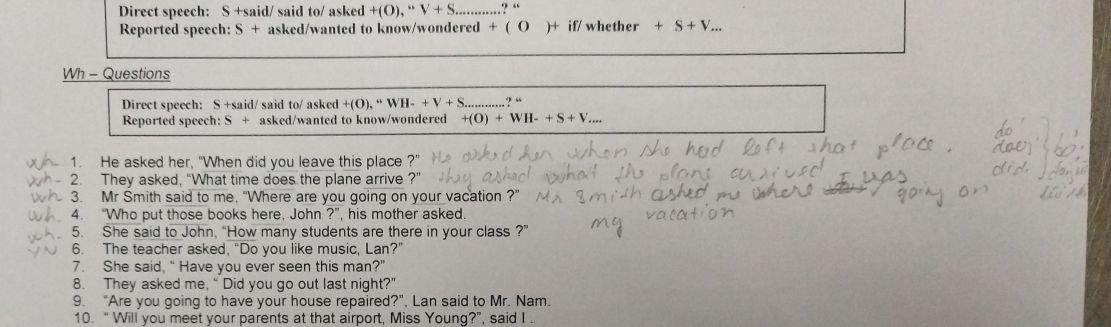 Direct speech: S +said/ said to/ asked +(O), “ V + S............? “
Reported speech: S + asked/wanted to know/wondered + ( O )+ if/ whether + S + V...
Wh – Questions
Direct speech: S +said/ said to/ asked +(O), “ WH- + V + S............? “
Reported speech: S + asked/wanted to know/wondered +(O) + WH- + S + V....
wh 1. He asked her, “When did you leave this place ?” He asked her when she had left that place.
wh- 2. They asked, “What time does the plane arrive ?” they asked what the plane arrived
wh 3. Mr Smith said to me, “Where are you going on your vacation ?” Mr Smith asked me where I was going on
my vacation
wh. 4. “Who put those books here, John ?”, his mother asked.
wh- 5. She said to John, “How many students are there in your class ?”
YN 6. The teacher asked, “Do you like music, Lan?”
7. She said, “ Have you ever seen this man?”
8. They asked me, “ Did you go out last night?”
9. “Are you going to have your house repaired?”, Lan said to Mr. Nam.
10. “ Will you meet your parents at that airport, Miss Young?”, said I .
do
does
did
bỏ